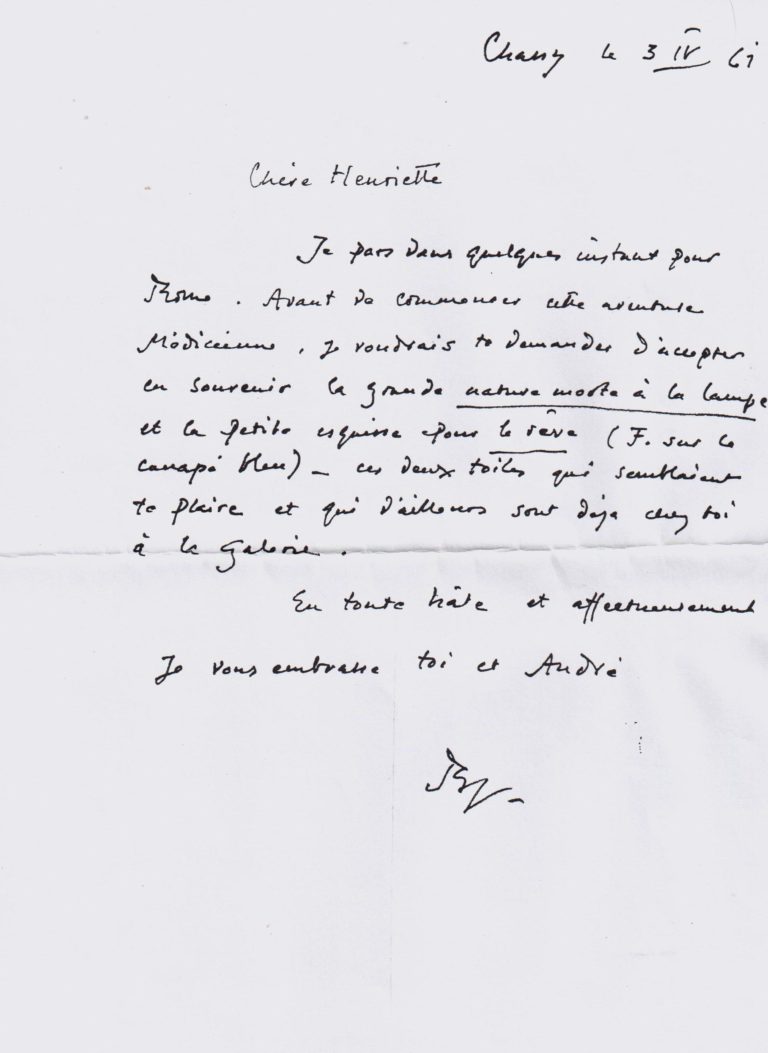 Chassy le 3 IV 61
Chère Henriette
Je pars dans quelques instant pour
Rome. Avant de commencer cette aventure
Médicéenne, je voudrais te demander d'accepter
en souvenir la grande nature morte à la lampe
et la petite esquisse pour le rêve (F. sur le
canapé bleu) – ces deux toiles qui semblaient
te plaire et qui d'ailleurs sont déja chez toi
à la Galerie.
En toute hâte et affectueusement
Je vous embrasse toi et André